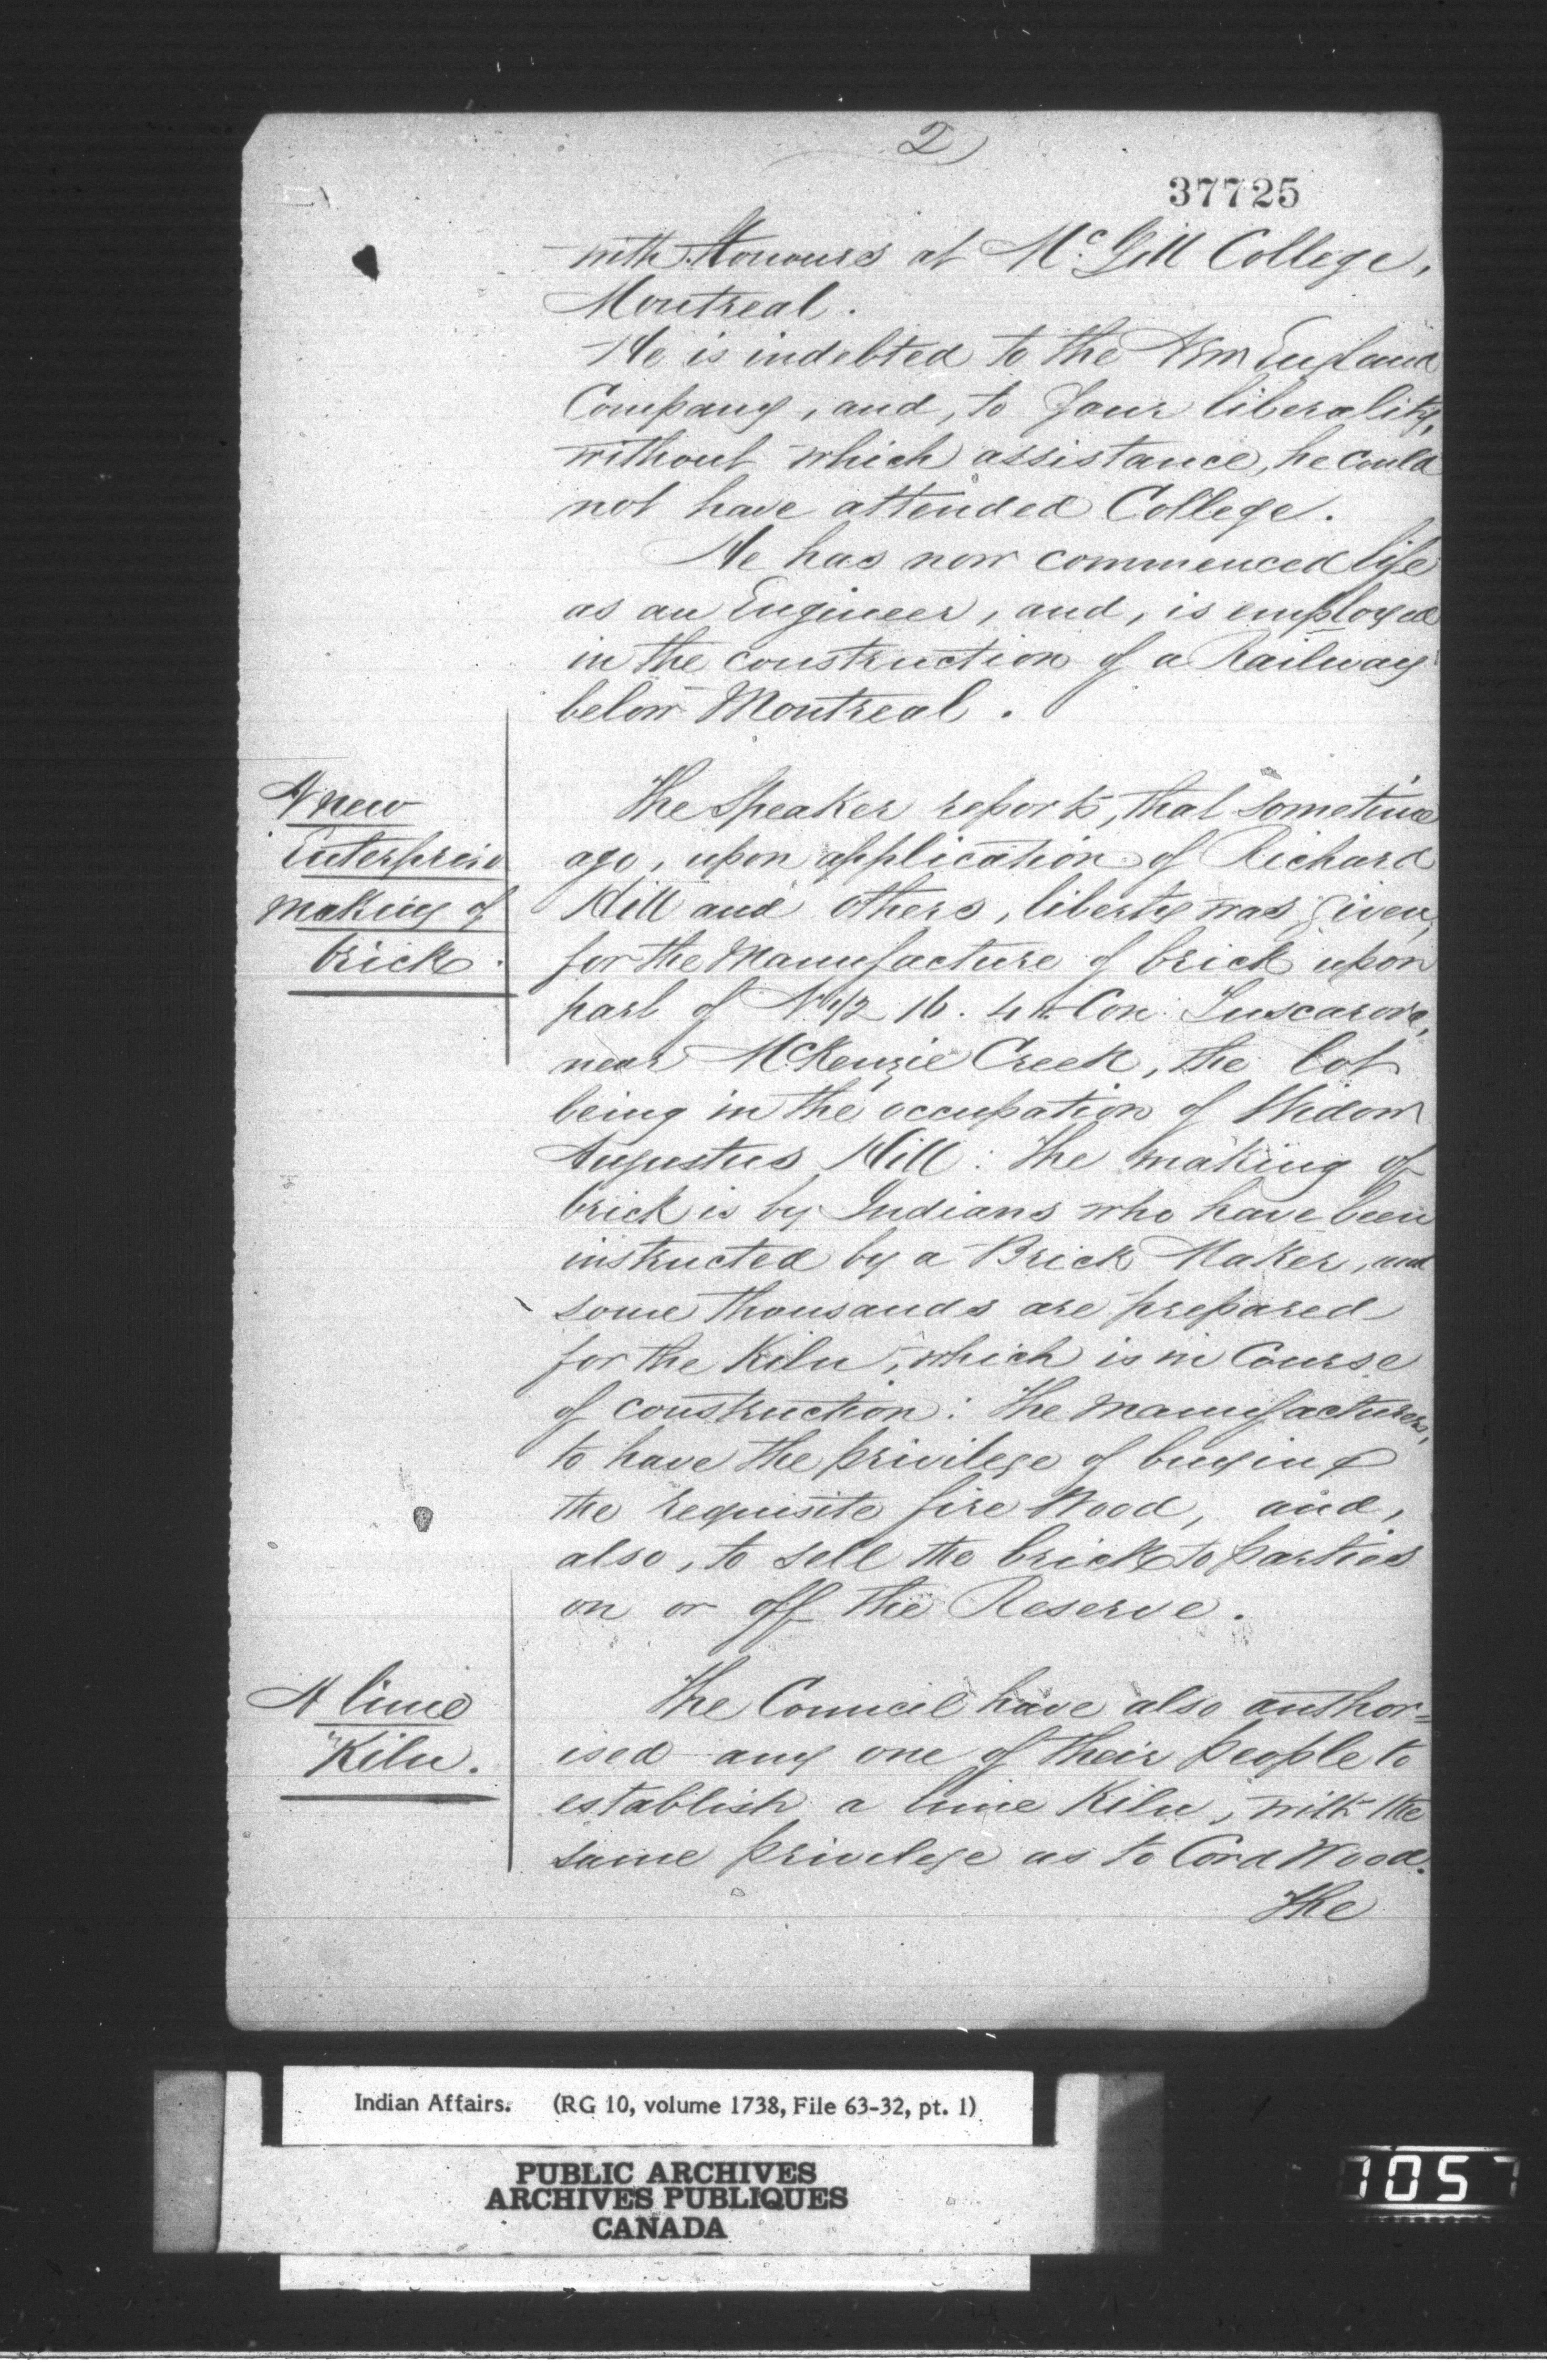 2
37725
with Honours at McGill College,
Montreal.
He is indebted to the New England
Company, and, to Your liberality,
without which assistance, he could
not have attended College.
He has now commenced life
as an Engineer, and, is employed
in the construction of a Railway
below Montreal.
A new
Enterprise
making of
brick.
The Speaker reports, that sometime
ago, upon application of Richard
Hill and others, liberty was given,
for the manufacture of brick upon
part of N 1/2 16. 4th Con: Tuscarora,
near McKenzie Creek, the lot
being in the occupation of Widow
Augustus Hill: The making of
brick is by Indians who have been
instructed by a Brick Maker, and
some thousands are prepared
for the Kiln, which is in Course
of construction: The manufacturers,
to have the privilege of buying
the requisite fire Wood, and,
also, to sell the brick to parties
on or off the Reserve.
A lime
Kiln.
The Council have also author=
ised any one of their people to
establish a lime Kiln, with the
same privilege as to Cord Wood.
The
Indian Affairs. (RG 10, volume 1738, File 63-32, pt. 1)
PUBLIC ARCHIVES
ARCHIVES PUBLIQUES
CANADA
1057